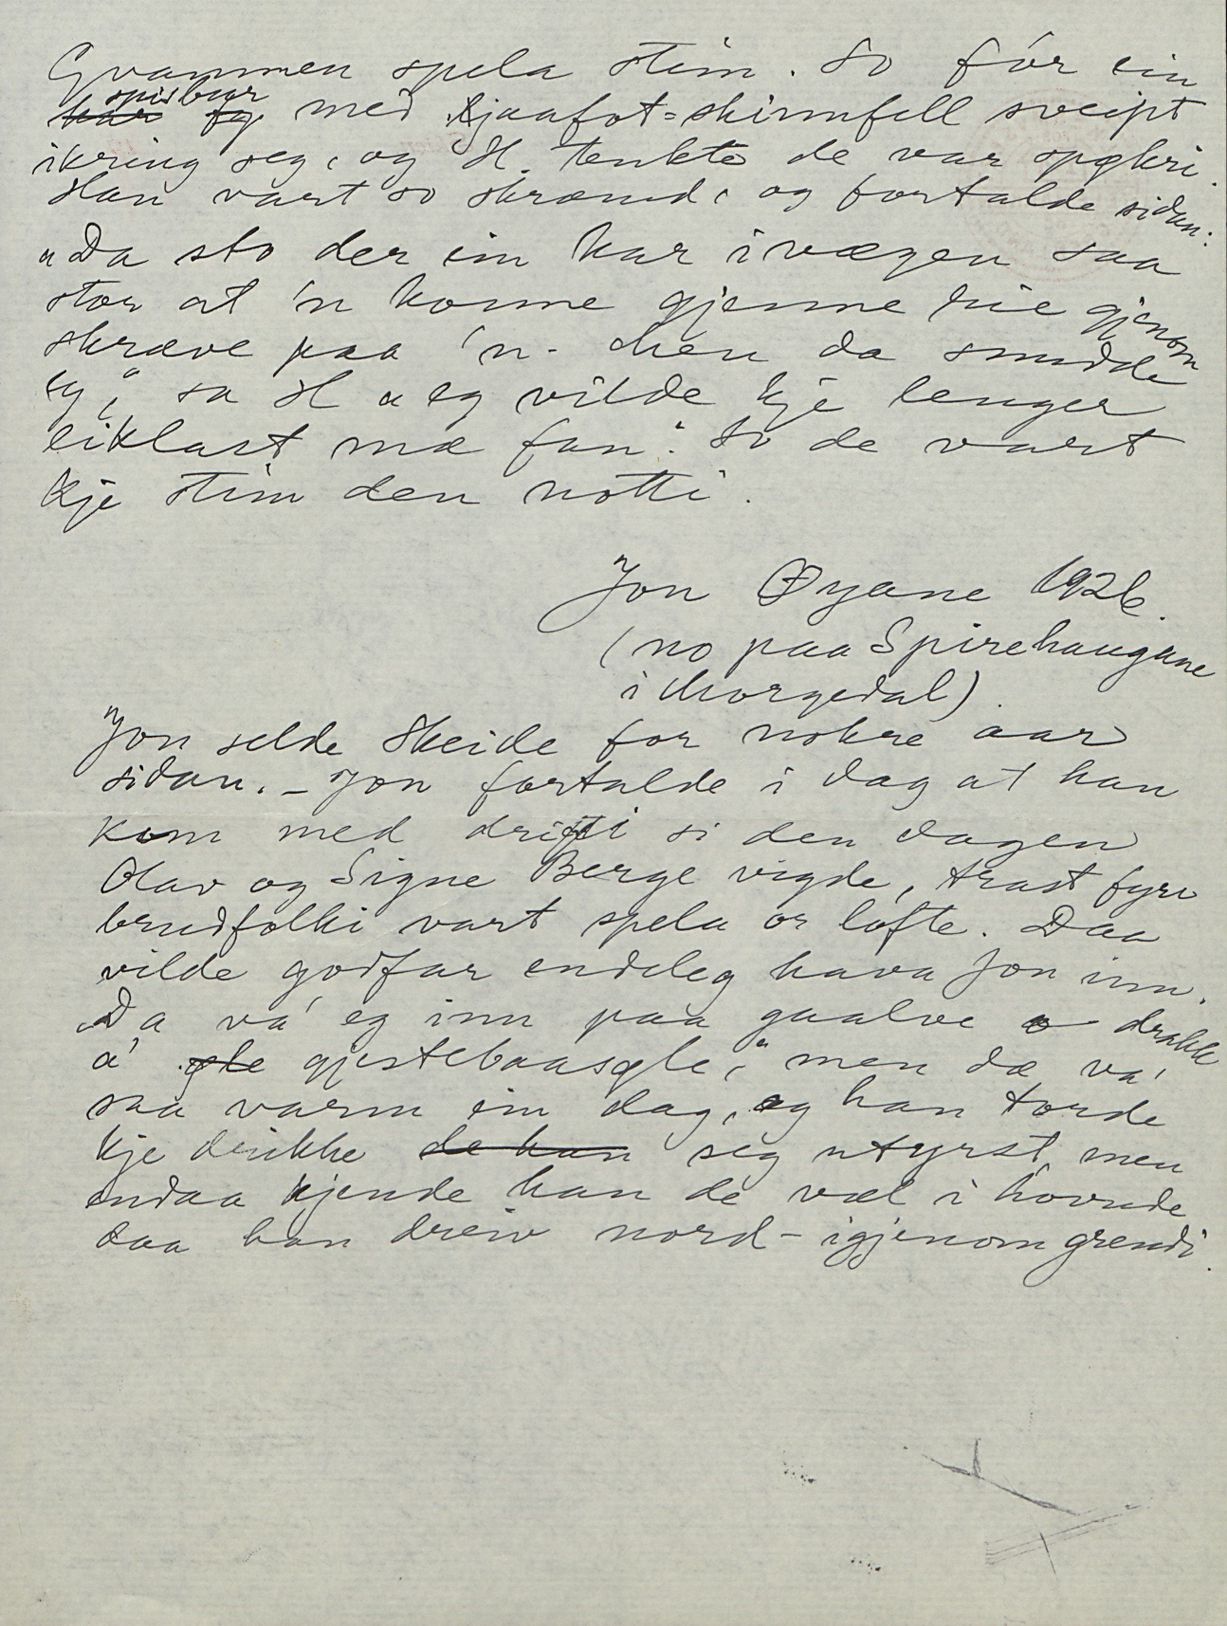 Gvammen spela stim. So fór ein
spisbur
kar og med kjaafot=skinnfell sveipt
ikring seg, og H. tenkte de var spøkri.
Han vart so skræmd, og fortalde sidan:
"Da sto der ein kar i vægen saa
stor at 'n konne gjenne rie gjenom
skræve paa 'n. Men da snudde
eg," sa H "eg vilde kje lenger
eiklast mæ fan". So de vart
kje stim den notti.
Jon Øyane 1926.
(no paa Spirehaugane
i Morgedal)
Jon selde Skeide for nokre aar
sidan. - Jon fortalde i dag at han
kom med drifti si den dagen
Olav og Signe Berge vigde, trast fyre
brudfolki vart spela or lofte. Daa
vilde godfar endeleg hava Jon inn.
"Da va' eg inn paa gaalve o drakk
a' øle gjestebaasøle," men dæ va'
saa varm ein dag, og han torde
kje drikke de han seg utyrst men
endaa kjende han de væl i hovude
daa han dreiv nord-igjenom grendi.